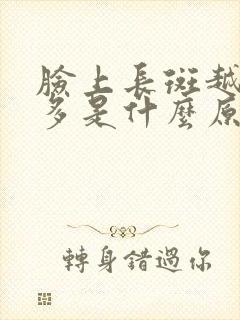 臉上長斑越
多是什麼原
轉身錯過你